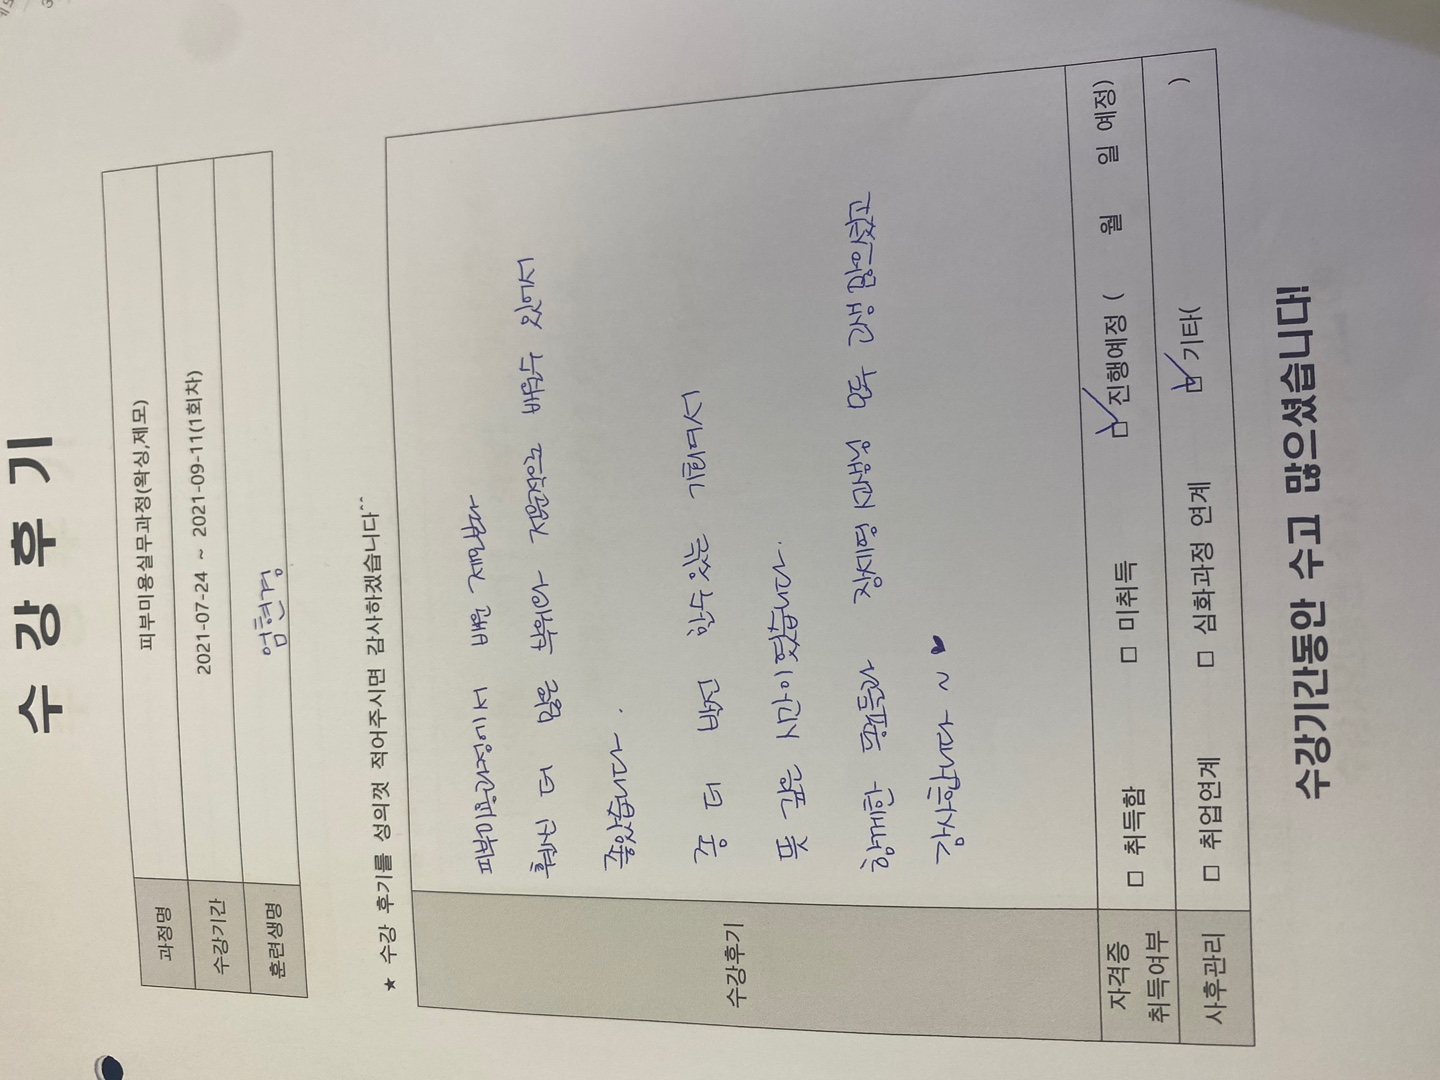 수 강 후 기
과정명 피부미용실무과정(왁싱,제모)
수강기간 2021-07-24 ~ 2021-09-11(1회차)
훈련생명 엄현정
★ 수강 후기를 성의껏 적어주시면 감사하겠습니다^^
수강후기
피부미용과정에서 배운 제모보다
훨씬 더 많은 부위와 전문적으로 배울수 있어서
좋았습니다.
좀 더 발전 할수 있는 기회여서
뜻 깊은 시간이 였습니다.
함께한 동료들과 강사님 선생님 모두 고생 많으셨고
감사합니다 ~ ♥
자격증 취득여부 □ 취득함 □ 미취득 ☑ 진행예정 ( 월 일 예정)
사후관리 □ 취업연계 □ 심화과정 연계 ☑ 기타( )
수강기간동안 수고 많으셨습니다!